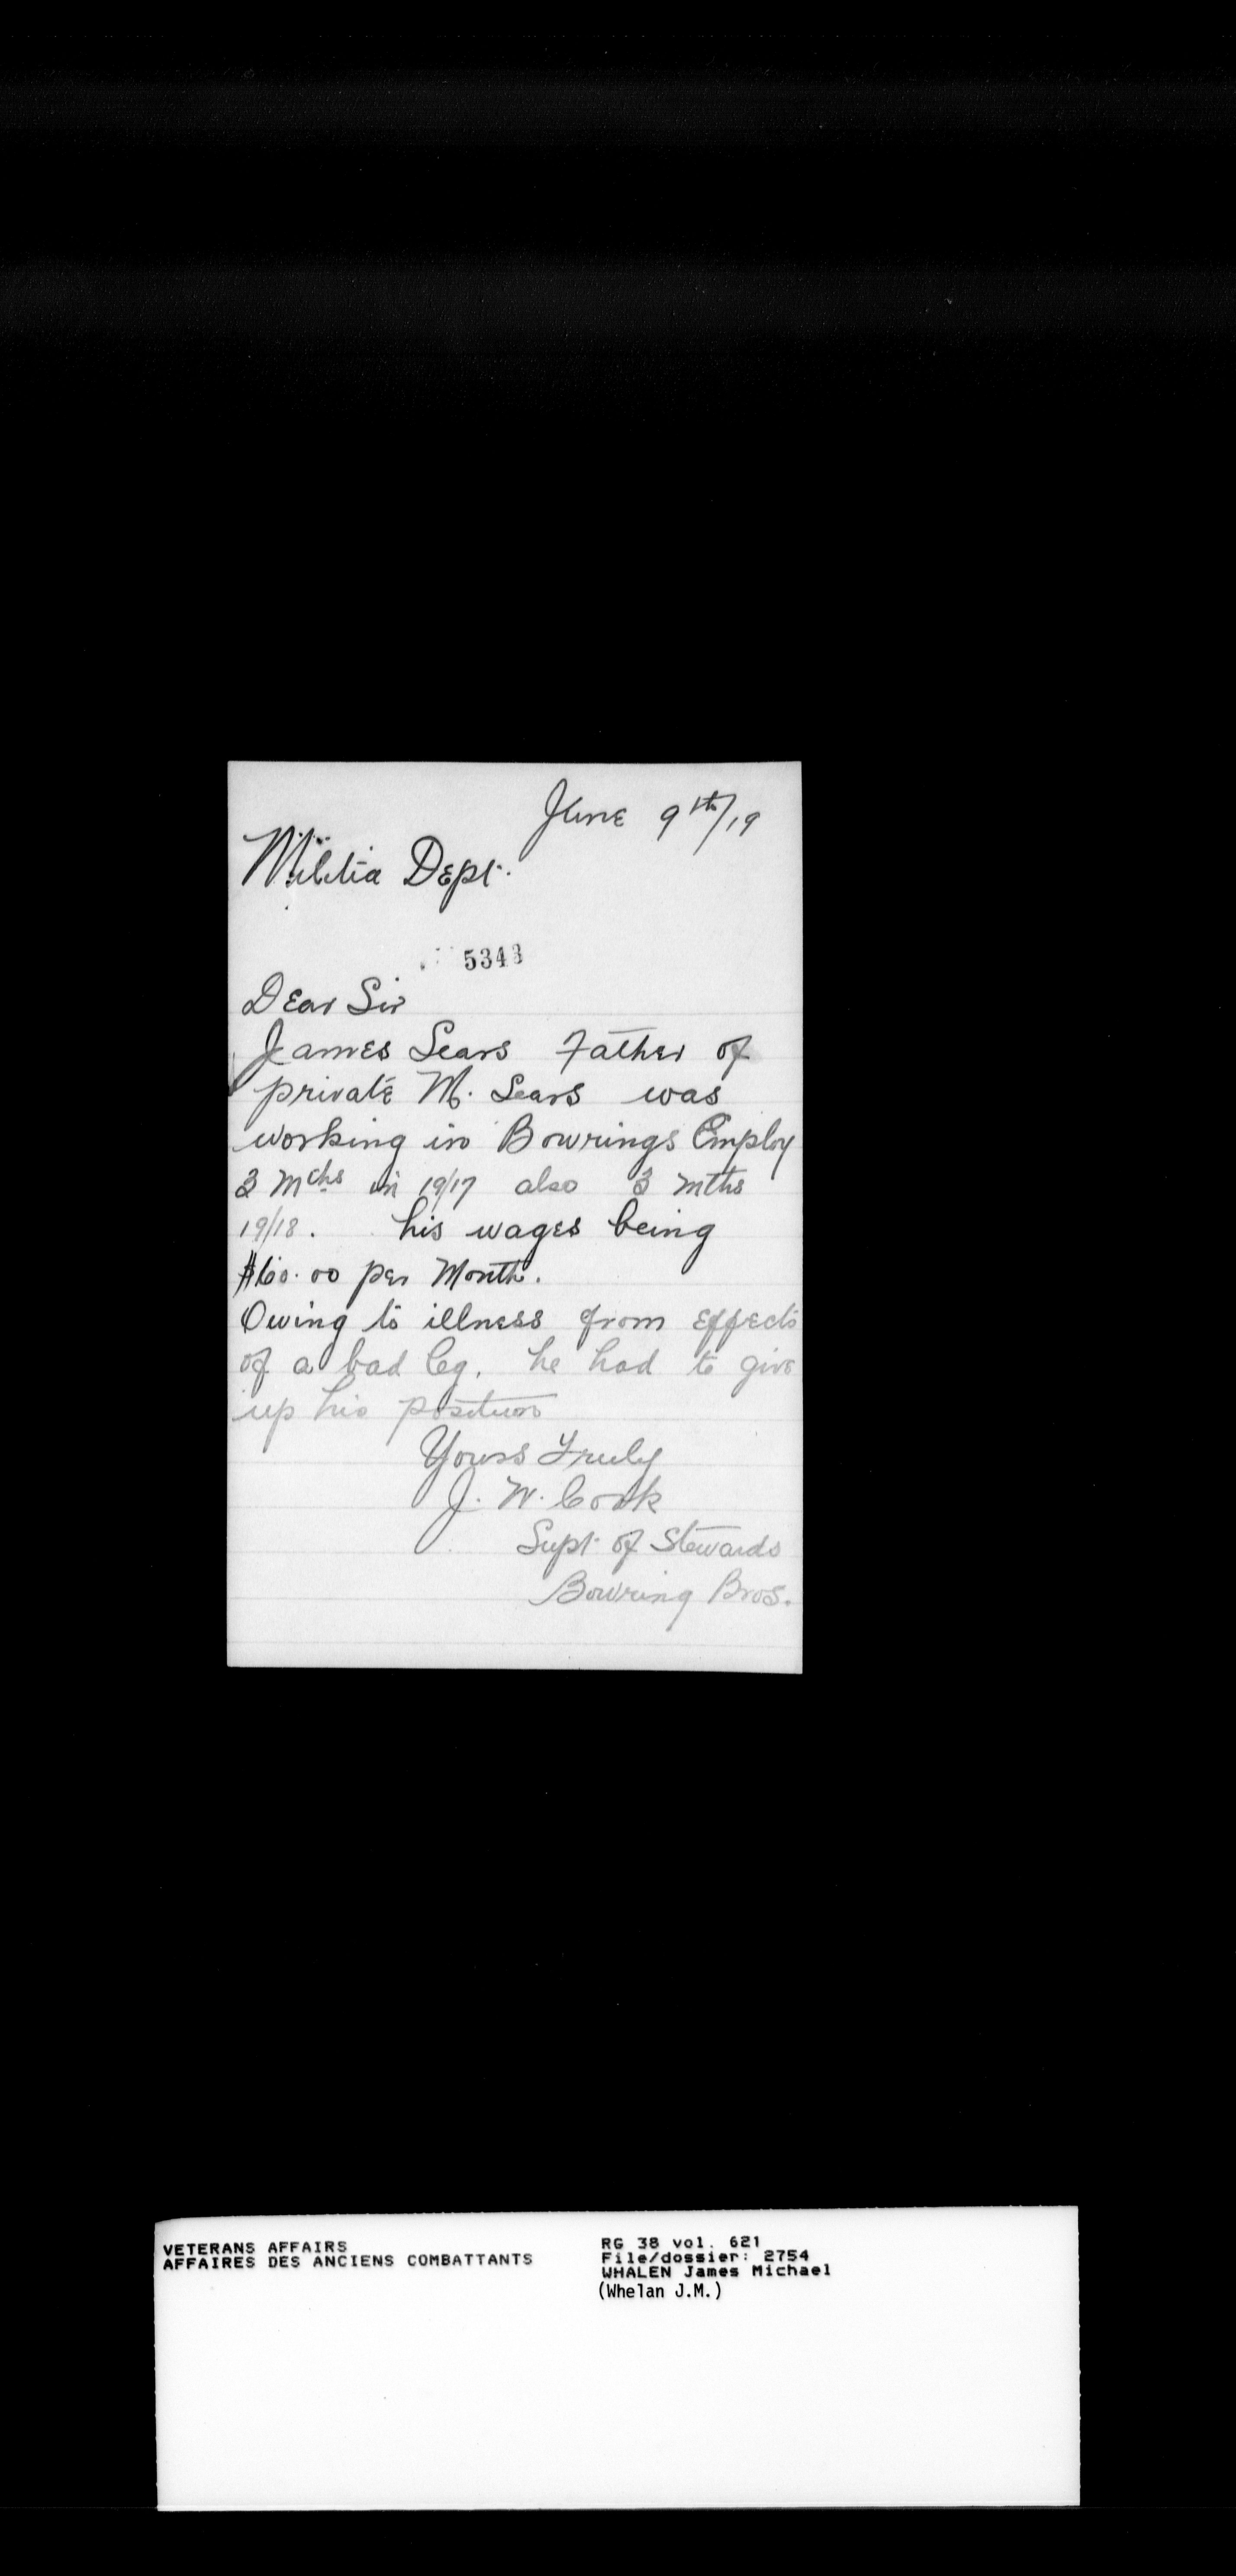 June 9th/19
Militia Dept.
5343
Dear Sir
James Sears Father of
private M. Sears was
working in Bowrings Employ
3 Mths in 19/17 also 3 Mths
19/18. his wages being
$60.00 per Month.
Owing to illness from effects
of a bad leg, he had to give
up his position
Yours Truly
J. W. Cook
Supt. of Stewards
Bowring Bros.
VETERANS AFFAIRS
AFFAIRES DES ANCIENS COMBATTANTS
RG 38 vol. 621
File/dossier: 2754
WHALEN James Michael
(Whelan J.M.)